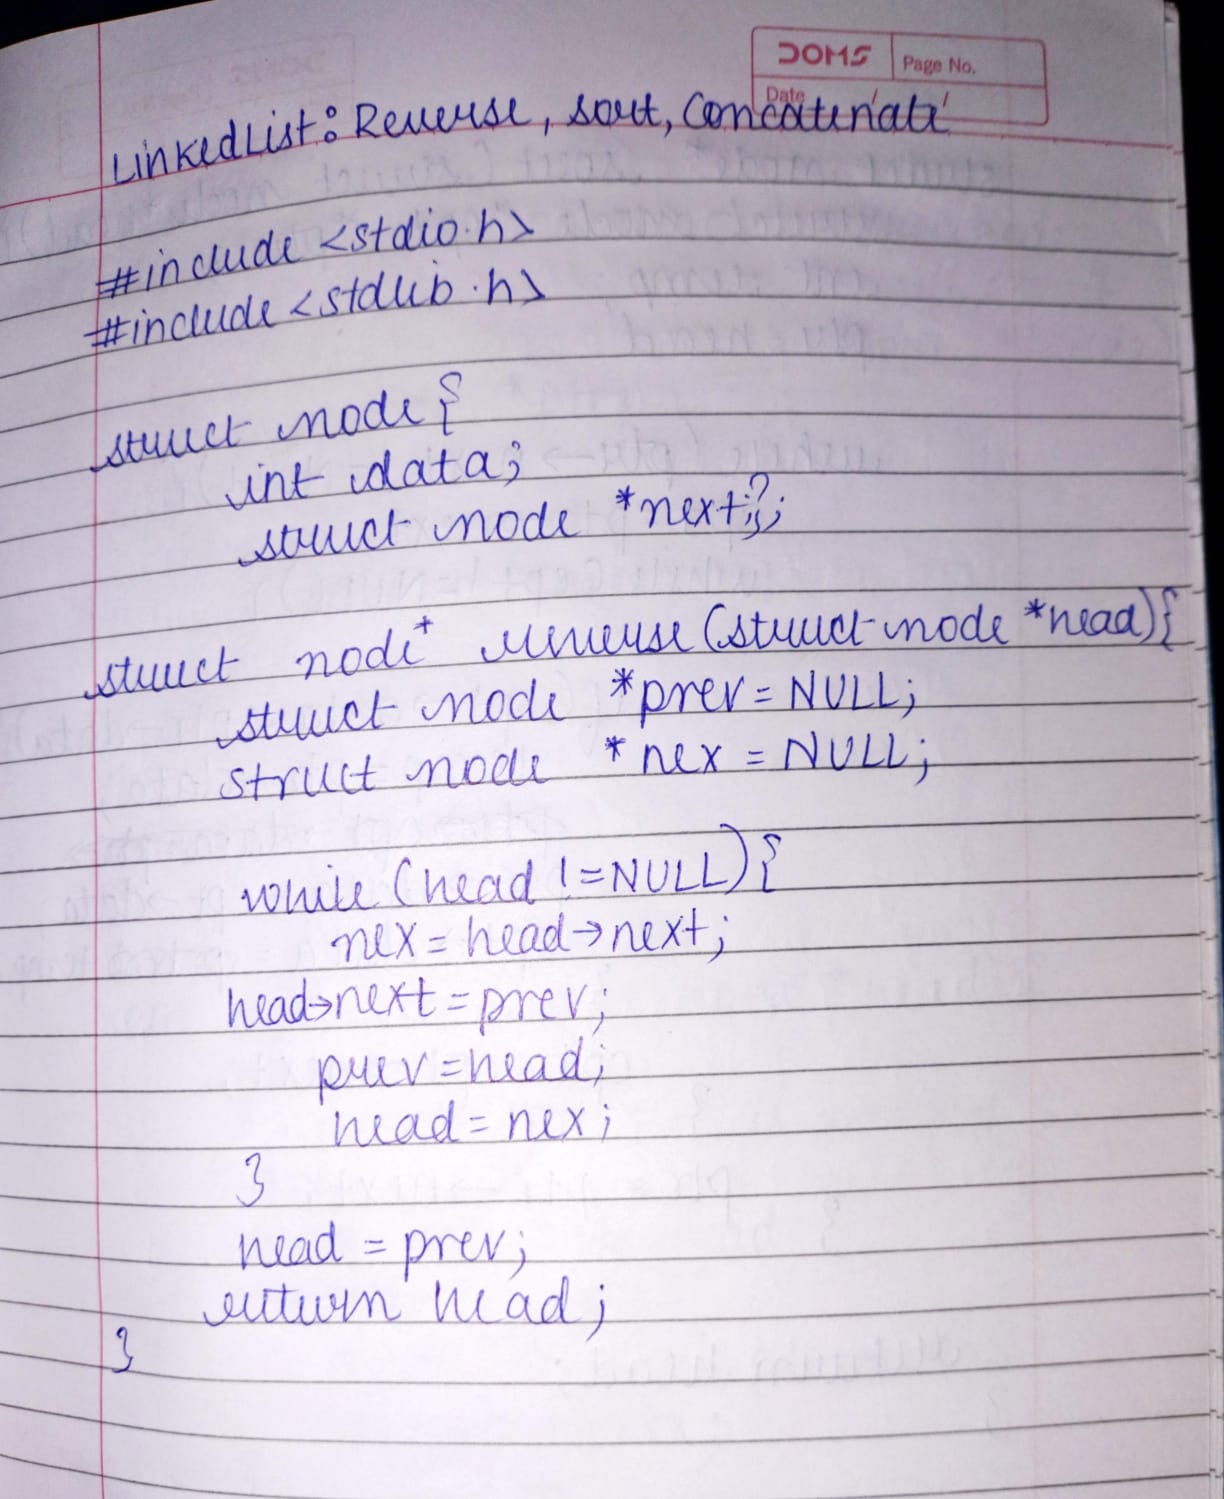 DOMS Page No.
Date
LinkedList: Reverse, sort, Concatenate
#include <stdio.h>
#include <stdlib.h>
struct node {
int data;
struct node *next;};
struct node* reverse(struct node *head){
struct node *prev = NULL;
struct node *nex = NULL;
while (head != NULL) {
nex = head→next;
head→next = prev;
prev = head;
head = nex;
}
head = prev;
return head;
}